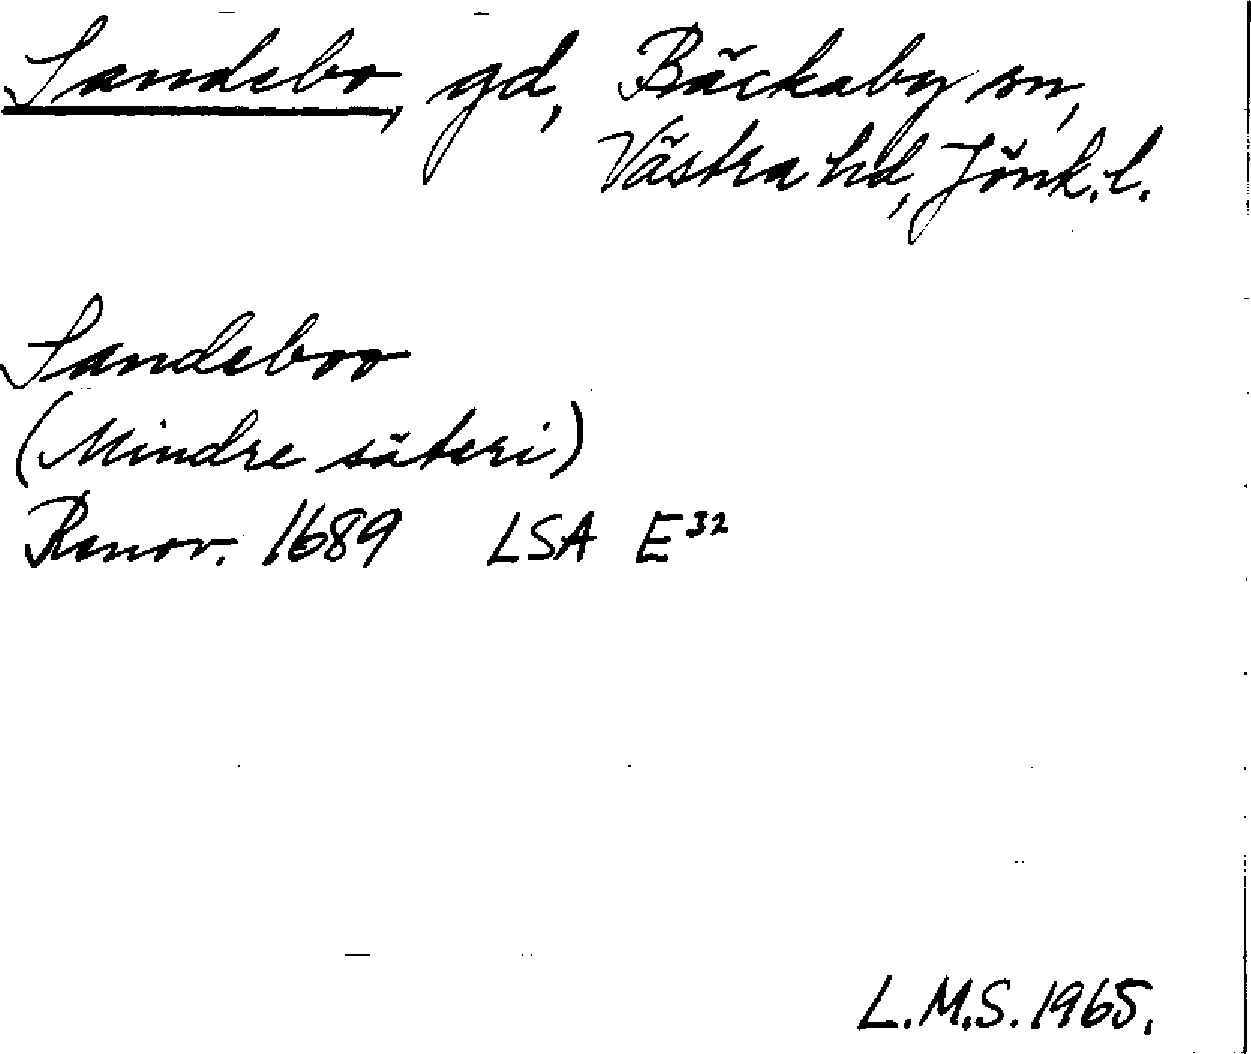 Sandebo, gd, Bäckaby sn,
Västra hd, Jönk. l.
Sandeboo
(Mindre säteri)
Renov. 1689 LSA E³²
L.M.S. 1965.